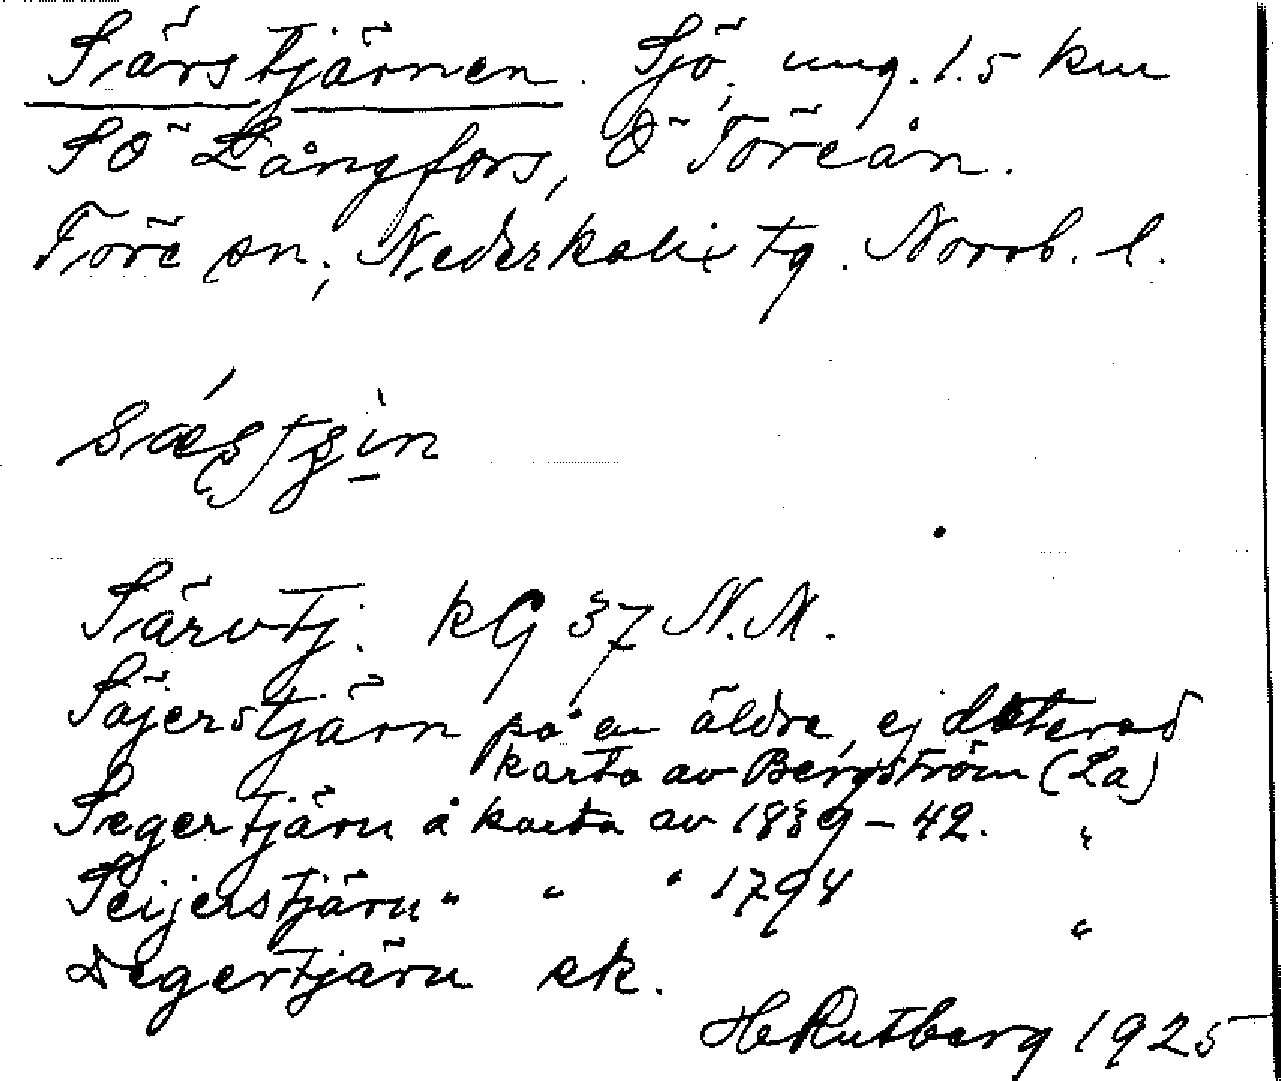 Särstjärnen. Sjö, ung. 1.5 km
SÖ Långfors, Ö Töreån.
Töre sn, Nederkalix tg. Norrb. l.
Särvtj. KG 37 N.M.
Säjerstjärn på en äldre, ej daterad
karta av Bergström (La)
Segertjärn å karta av 1839-42. "
Seijerstjärn " " " 1794 "
Degertjärn ek.
H Rutberg 1925